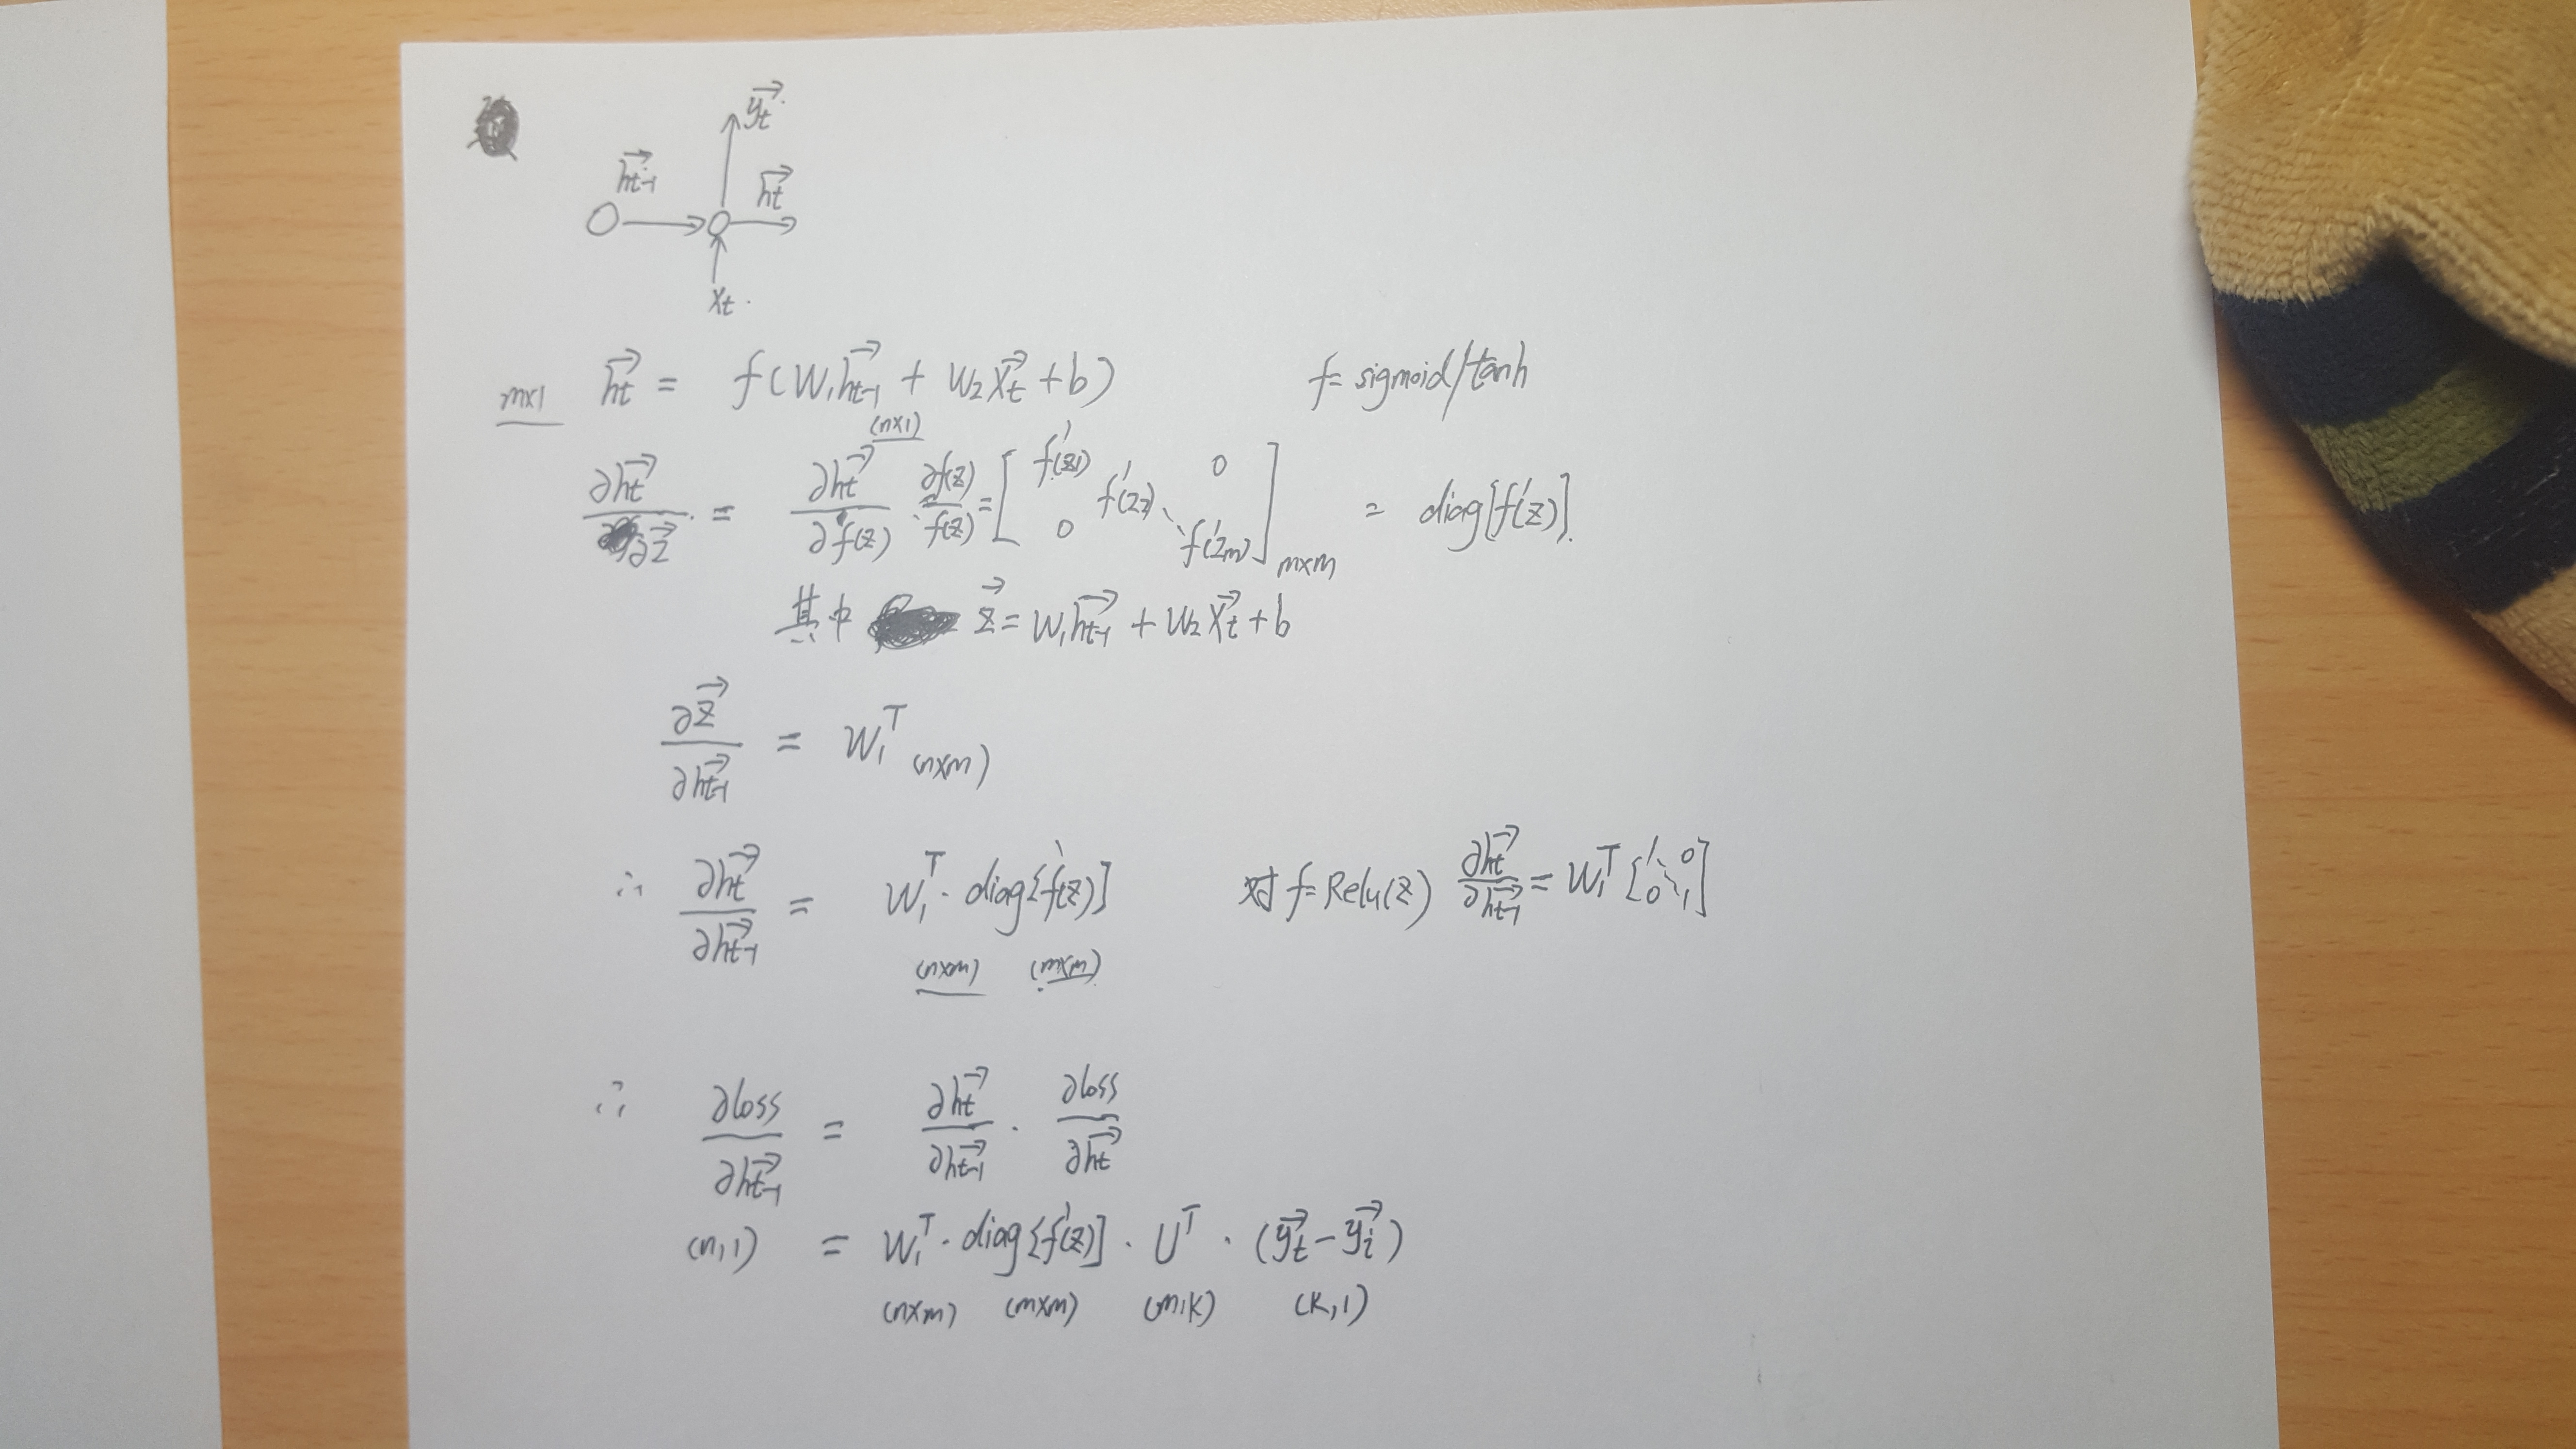 y⃗t
h⃗t-1
h⃗t
xt
m×1 h⃗t = f(W1h⃗t-1 + W2X⃗t + b) f = sigmoid/tanh
(n×1)
∂h⃗t/∂z⃗ = ∂h⃗t/∂f(z) · ∂f(z)/f(z) = [f'(z1) f'(z2) ⋱ f'(zm) 0 0] m×m = diag[f'(z)]
其中 z⃗ = W1h⃗t-1 + W2X⃗t + b
∂z⃗/∂h⃗t-1 = W1^T (n×m)
∴ ∂h⃗t/∂h⃗t-1 = W1^T · diag[f'(z)] 对 f = Relu(z) ∂h⃗t/∂h⃗t-1 = W1^T [1 ⋱ 1 0 0]
(n×m) (m×m)
∴ ∂loss/∂h⃗t-1 = ∂h⃗t/∂h⃗t-1 · ∂loss/∂h⃗t
(n,1) = W1^T · diag[f'(z)] · U^T · (y⃗t - y⃗i)
(n×m) (m×m) (m,k) (k,1)